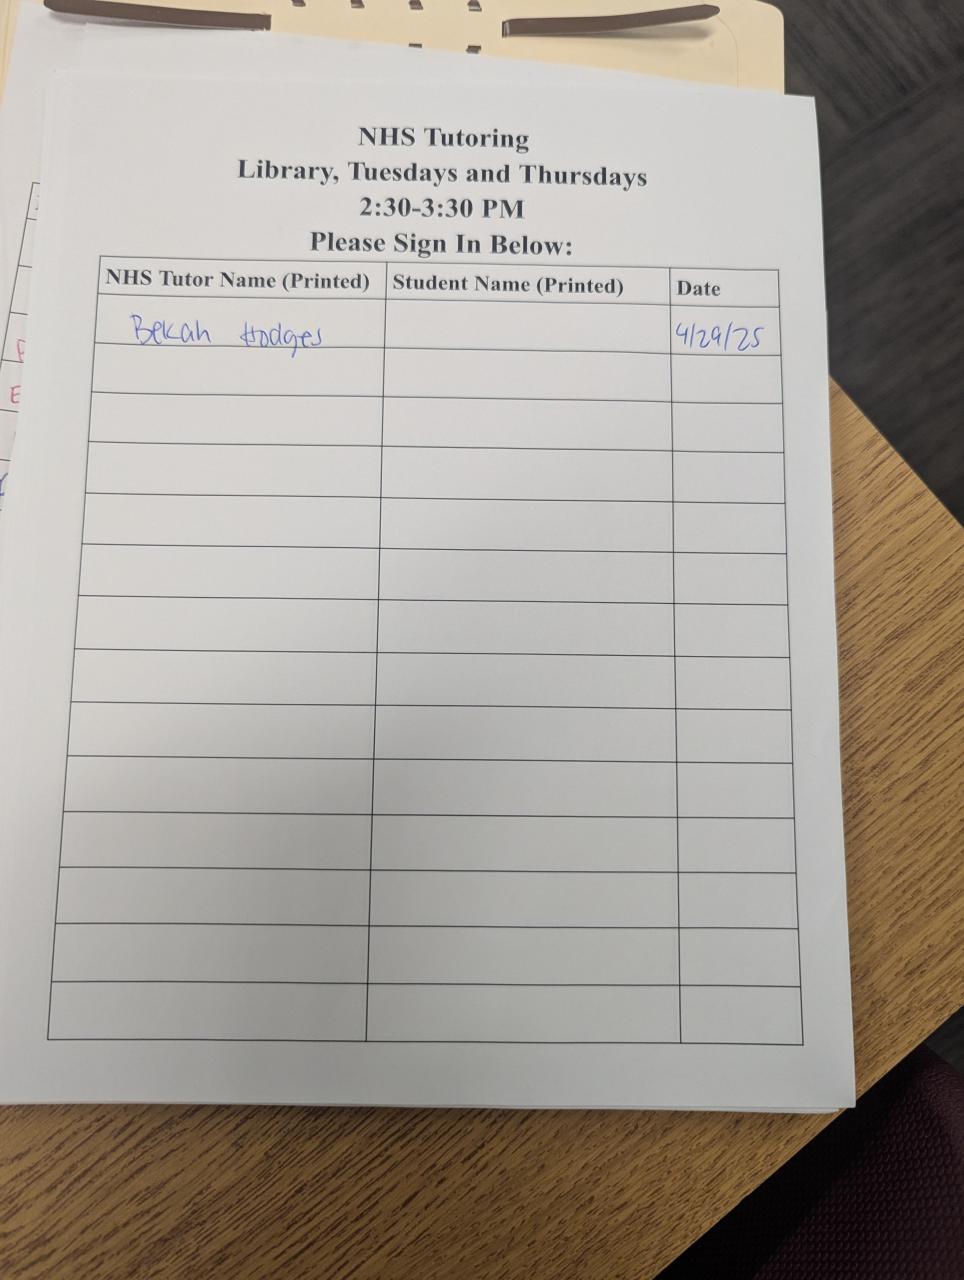 NHS Tutoring
Library, Tuesdays and Thursdays
2:30-3:30 PM
Please Sign In Below:
NHS Tutor Name (Printed) Student Name (Printed) Date
Bekah Hodges 4/29/25
E